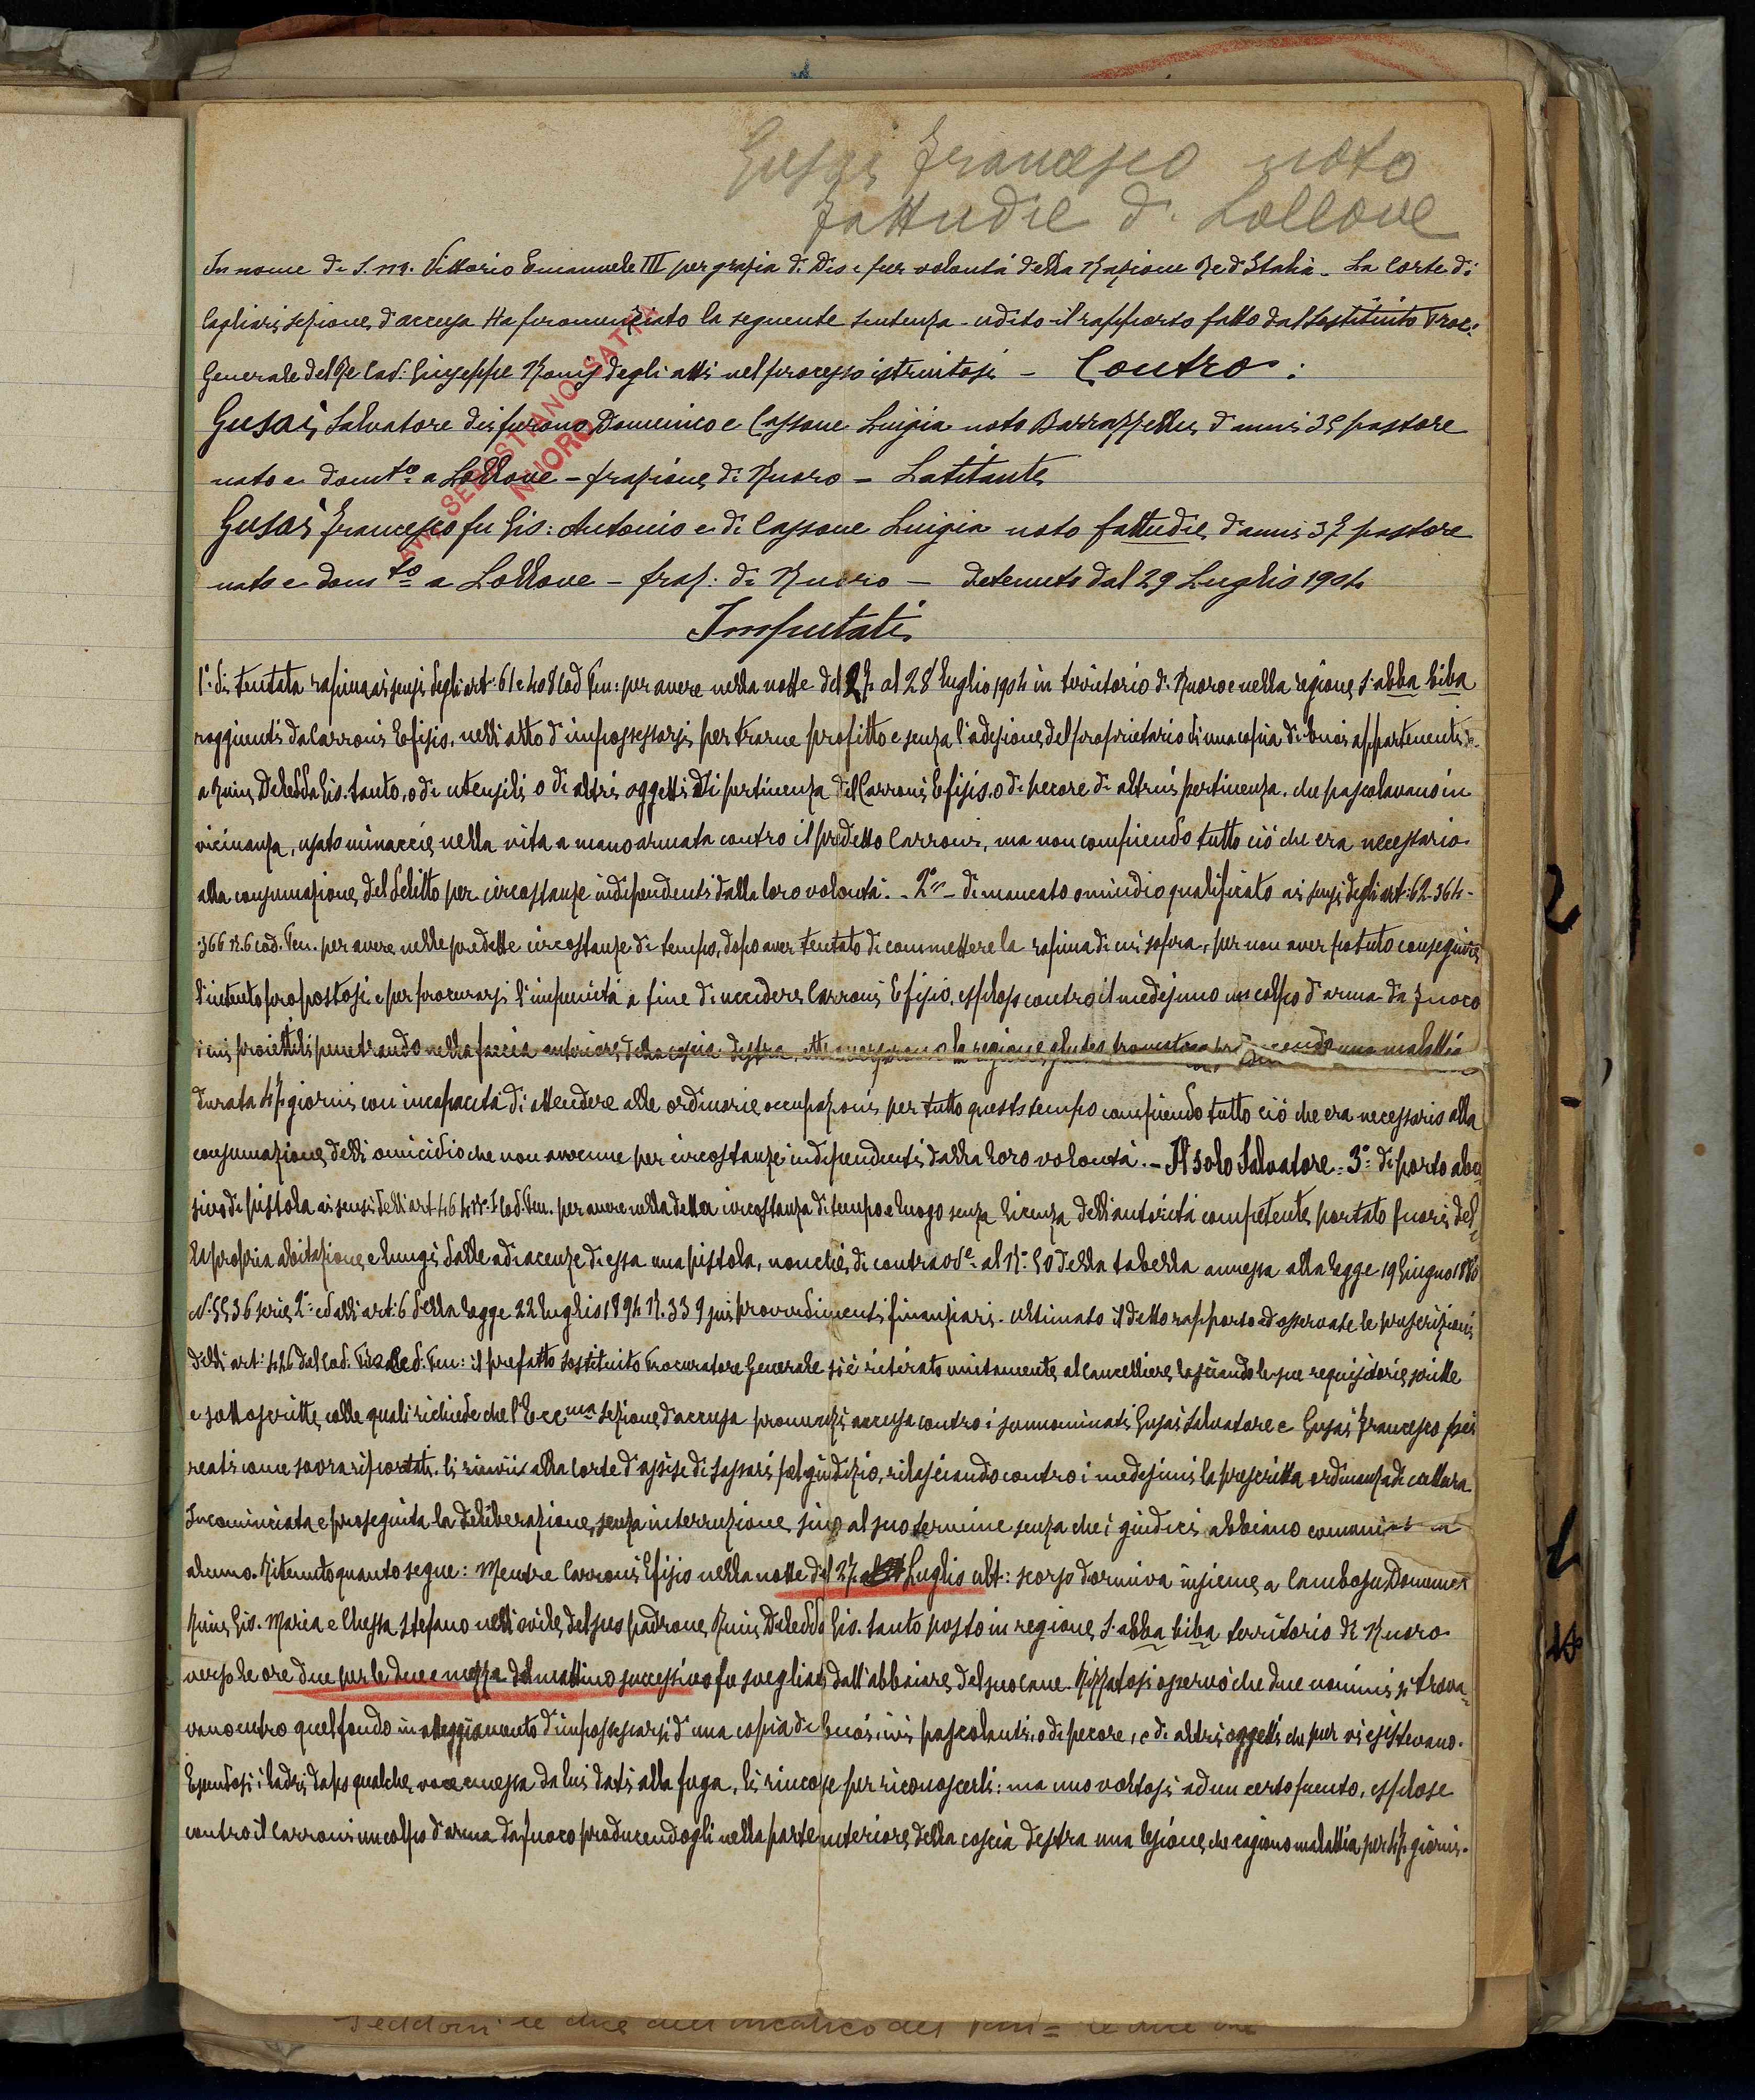 Gusai Francesco noto
fattudie di Lollove
In nome di S. M. Vittorio Emanuele III per grazia di Dio e per volontà della Nazione Re d'Italia - La Corte di
Cagliari sezione d'accusa Ha pronunciato la seguente sentenza - udito il rapporto fatto dal Sostituito Proc:
Generale del Re Cav. Giuseppe degli atti nel processo istruitosi - Contro:
Gusai Salvatore dei furono Domenico e Cassone Luigia noto d'anni 35 pastore
nato e domto a Lollove - frazione di Nuoro - Latitante
Gusai Francesco fu Gio: Antonio e di Cassone Luigia noto fattudie d'anni 37 pastore
nato e domto a Lollove - fraz: di Nuoro - detenuto dal 29 Luglio 1904
AVV. SEBASTIANO SATTA
NUORO
Imputati
1° di tentata rapina ai sensi degli art: 61 e 408 Cod Pen: per avere nella notte del 27 al 28 luglio 1904 in territorio di Nuoro e nella regione S'abba biba
raggiunti da Carroni Efisio, nell'atto d'impossessarsi per trarne profitto e senza l'adesione del proprietario di una copia di buoi appartenenti
a Deledda Gio. tanto, o di utensili o di altri oggetti di pertinenza del Carroni Efisio o di pecore di altrui pertinenza, che pascolavano in
vicinanza, usato minaccie nella vita a mano armata contro il predetto Carroni, ma non compiendo tutto ciò che era necessario
alla consumazione del delitto per circostanze indipendenti dalla loro volontà. - 2° - di mancato omicidio qualificato ai sensi degli art: 62-364-
366 N. 6 cod. Pen. per avere nelle predette circostanze di tempo, dopo aver tentato di commettere la rapina di cui sopra, per non aver potuto conseguire
l'intento propostosi e per procurarsi l'impunità a fine di uccidere Carroni Efisio, esploso contro il medesimo un colpo d'arma da fuoco
i cui proiettili penetrando nella faccia anteriore della coscia destra, la regione glutea una malattia
durata 47 giorni con incapacità di attendere alle ordinarie occupazioni per tutto questo tempo compiendo tutto ciò che era necessario alla
consumazione dell'omicidio che non avvenne per circostanze indipendenti dalla loro volontà. - Il solo Salvatore: 3° di porto abu
sivo di pistola ai sensi dell'art 464 N° 1 Cod. Pen. per avere nella detta circostanza di tempo e luogo senza licenza dell'autorità competente portato fuori del
la propria abitazione e lungi dalle adiacenze di essa una pistola, nonché di contravve al N° 50 della tabella annessa alla legge 19 Giugno 1880
N. 5536 serie 2° ed all'art: 6 della legge 22 luglio 1894 N. 339 sui provvedimenti finanziari. Ultimato il detto rapporto ed osservate le prescrizioni
dell'art: 426 del Cod. Pen: il prefatto Sostituito Procuratore Generale si è ritirato unitamente al Cancelliere lasciando le sue requisitorie scritte
e sottoscritte colle quali richiede che l'Eccma sezione d'accusa pronunzi accusa contro i sunnominati Gusai Salvatore e Gusai Francesco pei
reati come sovra riportati. li rinvii alla Corte d'assise di Sassari pel giudizio, rilasciando contro i medesimi la prescritta ordinanza di cattura
Incominciata e proseguita la deliberazione, senza interruzione sino al suo termine senza che i giudici abbiano
alcuno. Ritenuto quanto segue: Mentre Carroni Efisio nella notte del 27 Luglio ult: scorso dormiva insieme a Cambosu Domenico
Gio. Maria e Chessa Stefano nell'ovile del suo padrone Deledda Gio. tanto posto in regione S'abba biba territorio di Nuoro
verso le ore due per le due e mezza del mattino successivo fu svegliato dall'abbaiare del suo cane. Rizzatosi osservò che due uomini si trova=
vano entro quel fondo in atteggiamento d'impossessarsi d'una copia di buoi, ivi pascolanti, o di pecore, e di altri oggetti che pur vi esistevano.
Essendosi i ladri dopo qualche voce emessa da lui dati alla fuga, li rincorse per riconoscerli: ma uno voltosi ad un certo punto, esplose
contro il Carroni un colpo d'arma da fuoco producendogli nella parte anteriore della coscia destra una lesione che cagionò malattia per 47 giorni.